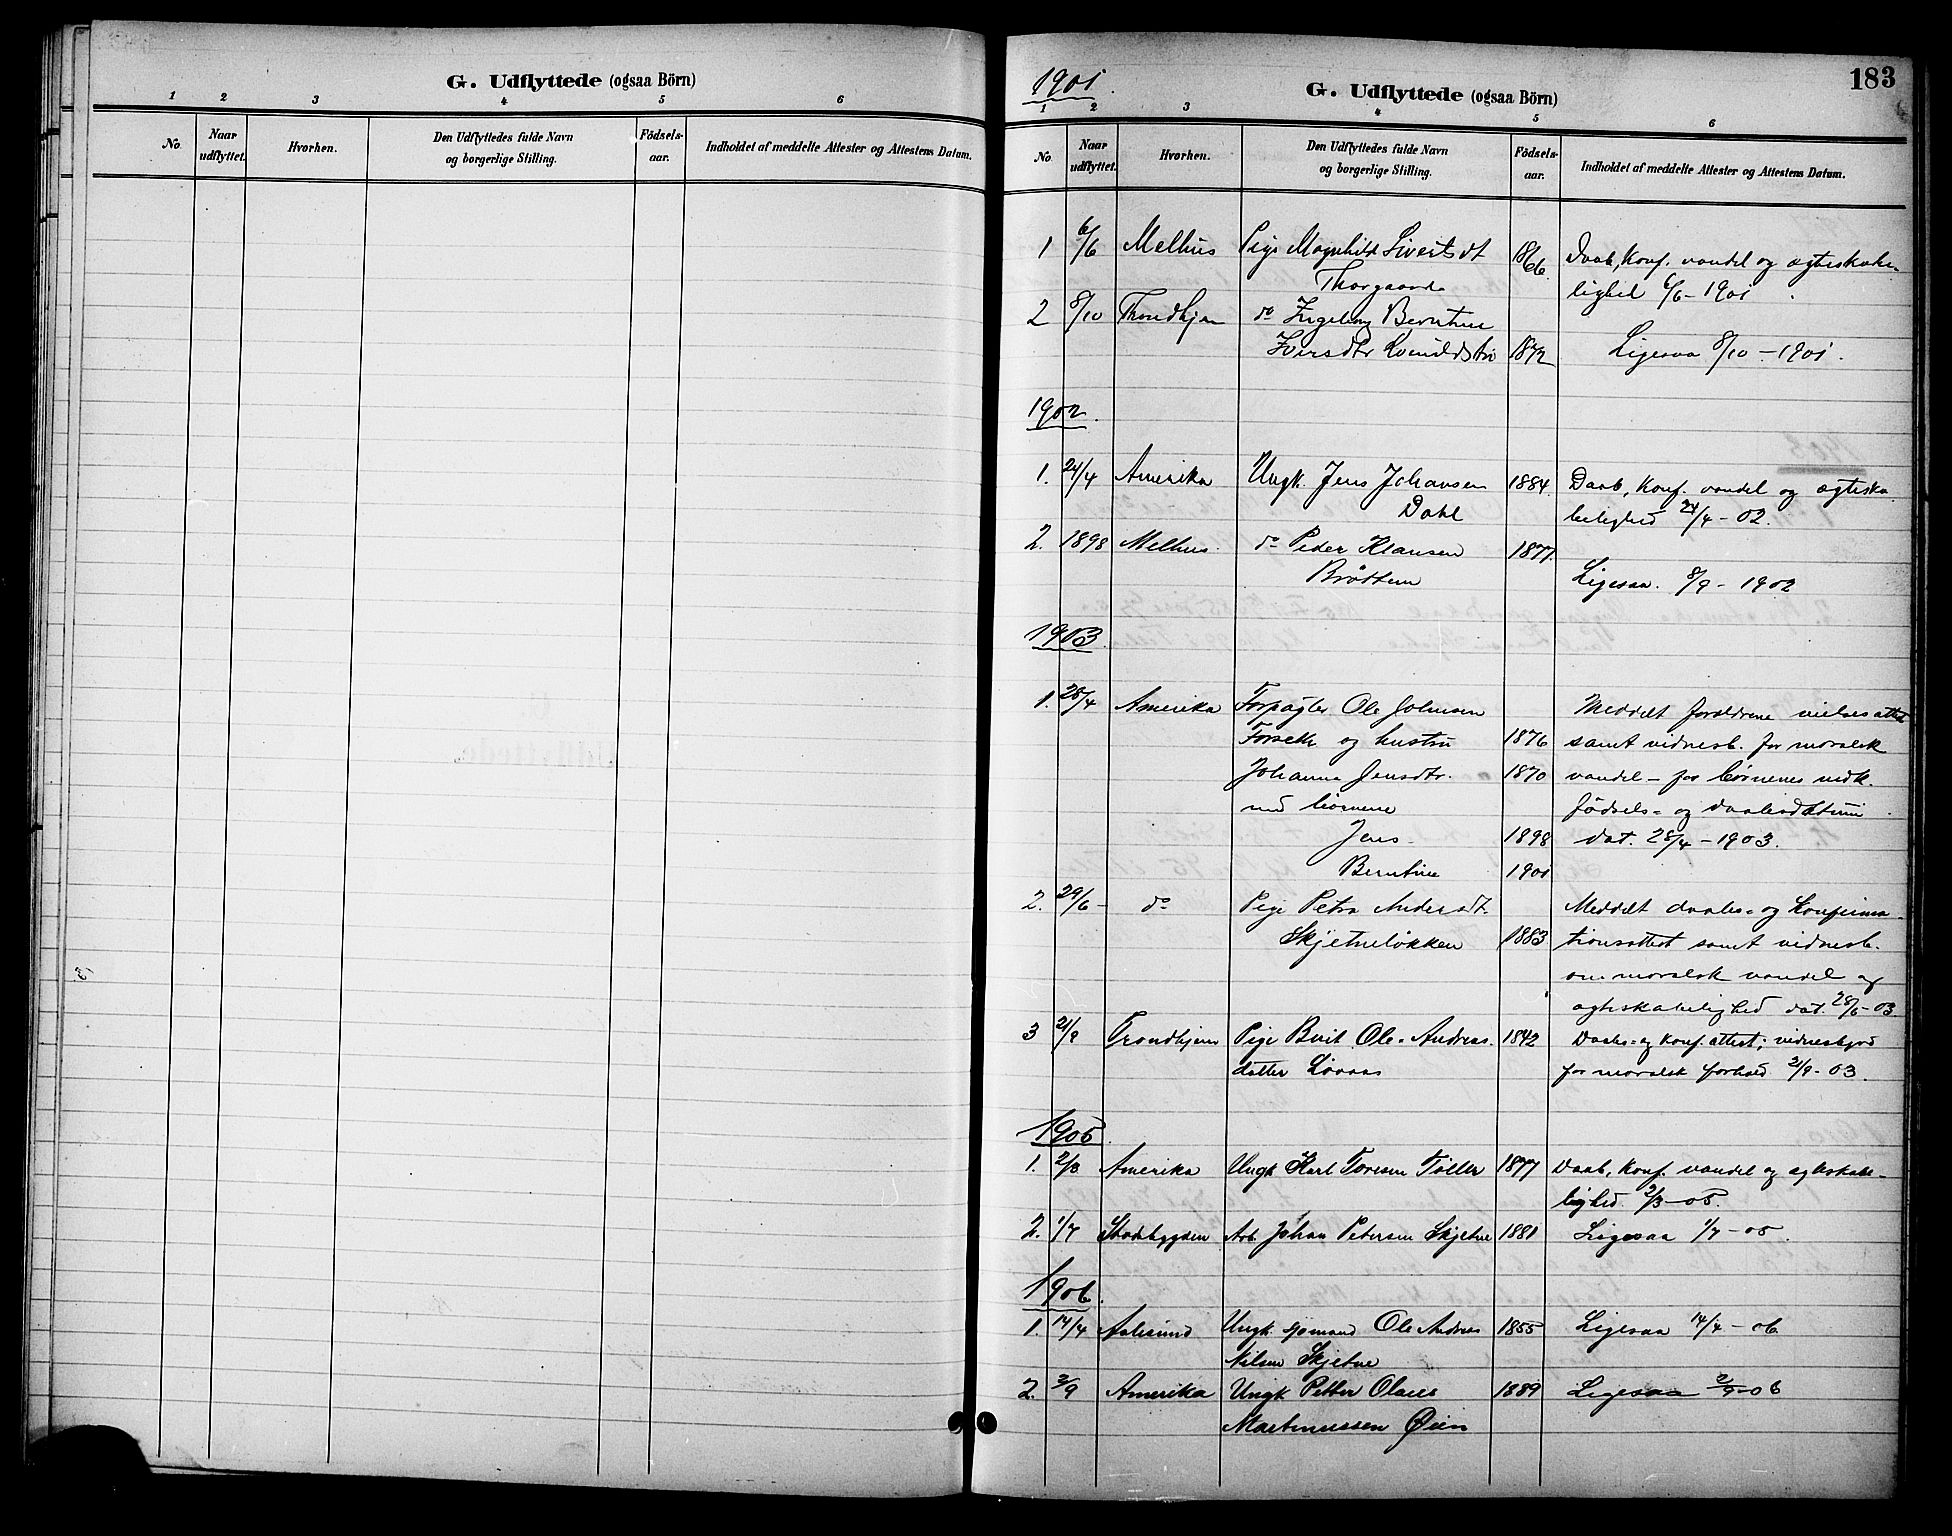 G. Udflyttede (ogsaa Börn)
1 2 3 4 5 6
No. Naar udflyttet. Hvorhen. Den Udflyttedes fulde Navn og borgerlige Stilling. Födsels-aar. Indholdet af meddelte Attester og Attestens Datum.
183
1901.
G. Udflyttede (ogsaa Börn)
1 2 3 4 5 6
No. Naar udflyttet. Hvorhen. Den Udflyttedes fulde Navn og borgerlige Stilling. Födsels-aar. Indholdet af meddelte Attester og Attestens Datum.
1 6/6 Melhus Pige Magnhild Sivertsdt 1866 Daab, Konf. vandel og ægteskabe-
Thorgaard lighed 6/6-1901.
2 8/10 Trondhjem do Ingeborg Berntine
Iversdtr 1872 Ligesaa 8/10-1901.
1902.
1. 24/4 Amerika Ungk. Jens Johansen 1884. Daab, Konf. vandel og ægteska
Dahl belighed 24/4-02.
2. 1898 Melhus. do Peder Klausen 1877.
Bröttem Ligesaa. 8/9-1902
1903.
1. 28/4 Amerika Forpagter Ole Johnsen Meddelt forældrene vielsesattest
Forseth og hustru 1876 samt vidnesb. for moralsk
Johanna Jensdtr. 1870 vandel - for börnenes vedk.
med börnene födsels- og daabsdatum
Jens 1898 dat. 28/4-1903.
Berntine 1901
2. 29/6- do Pige Petra Andersdt. Meddelt daabs- og Konfirma-
Skjetnelökken 1883 tionsattest samt vidnesb.
om moralsk vandel og
ægteskabelighed dat. 28/6-03
3 21/9 Trondhjem Pige Berit Ole-Andreas- 1842 Daabs- og Konf.attest; vidnesbyrd
datter Lövaas for moralsk forhold 2/9-03.
1905.
1. 2/3 Amerika Ungk Karl Toresen Töller 1877 Daab, Konf. vandel og ægteskabe-
lighed. 2/3-05.
2. 1/7 Stadsbygden Arb. Johan Petersen Skjetne 1881 Ligesaa 1/7-05.
1906.
1. 14/4 Aalesund Ungk. sjömand Ole Andreas 1855 Ligesaa 14/4-06
Nilsen Skjetne
2. 2/9 Amerika Ungk Petter Olaus 1889 Ligesaa 2/9-06
Martinussen Öien